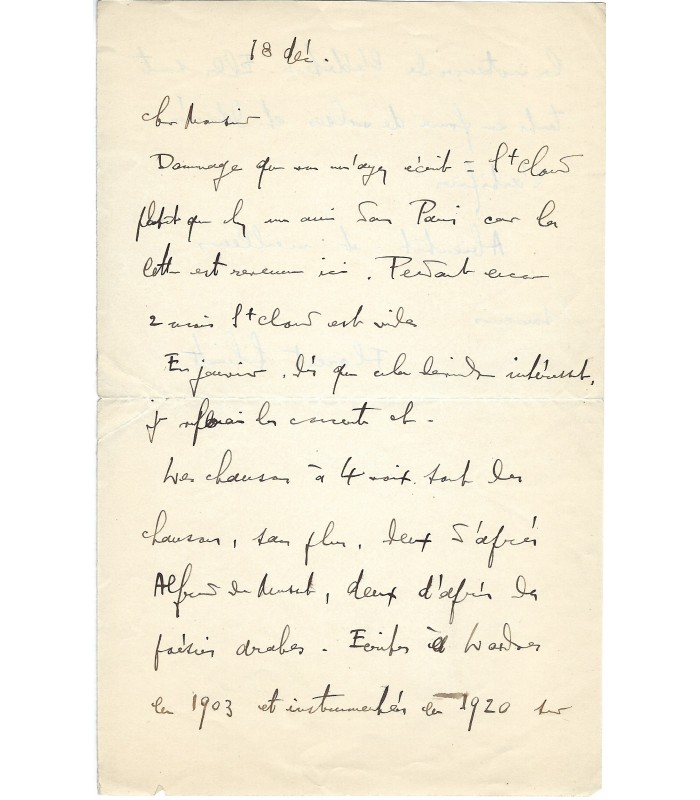 18 déc.
Cher Monsieur
Dommage que vous m'ayez écrit à St Cloud
plutôt que chez un ami dans Paris car la
lettre est revenue ici. Pendant encore
2 mois St Cloud est vide
En janvier, dès que cela deviendra intéressant,
je referai les concerts et.
Les chansons à 4 voix sont des
chansons, sans plus, deux d'après
Alfred de Musset, deux d'après des
poésies arabes. Ecrites à Londres
en 1903 et instrumentées en 1920 sur